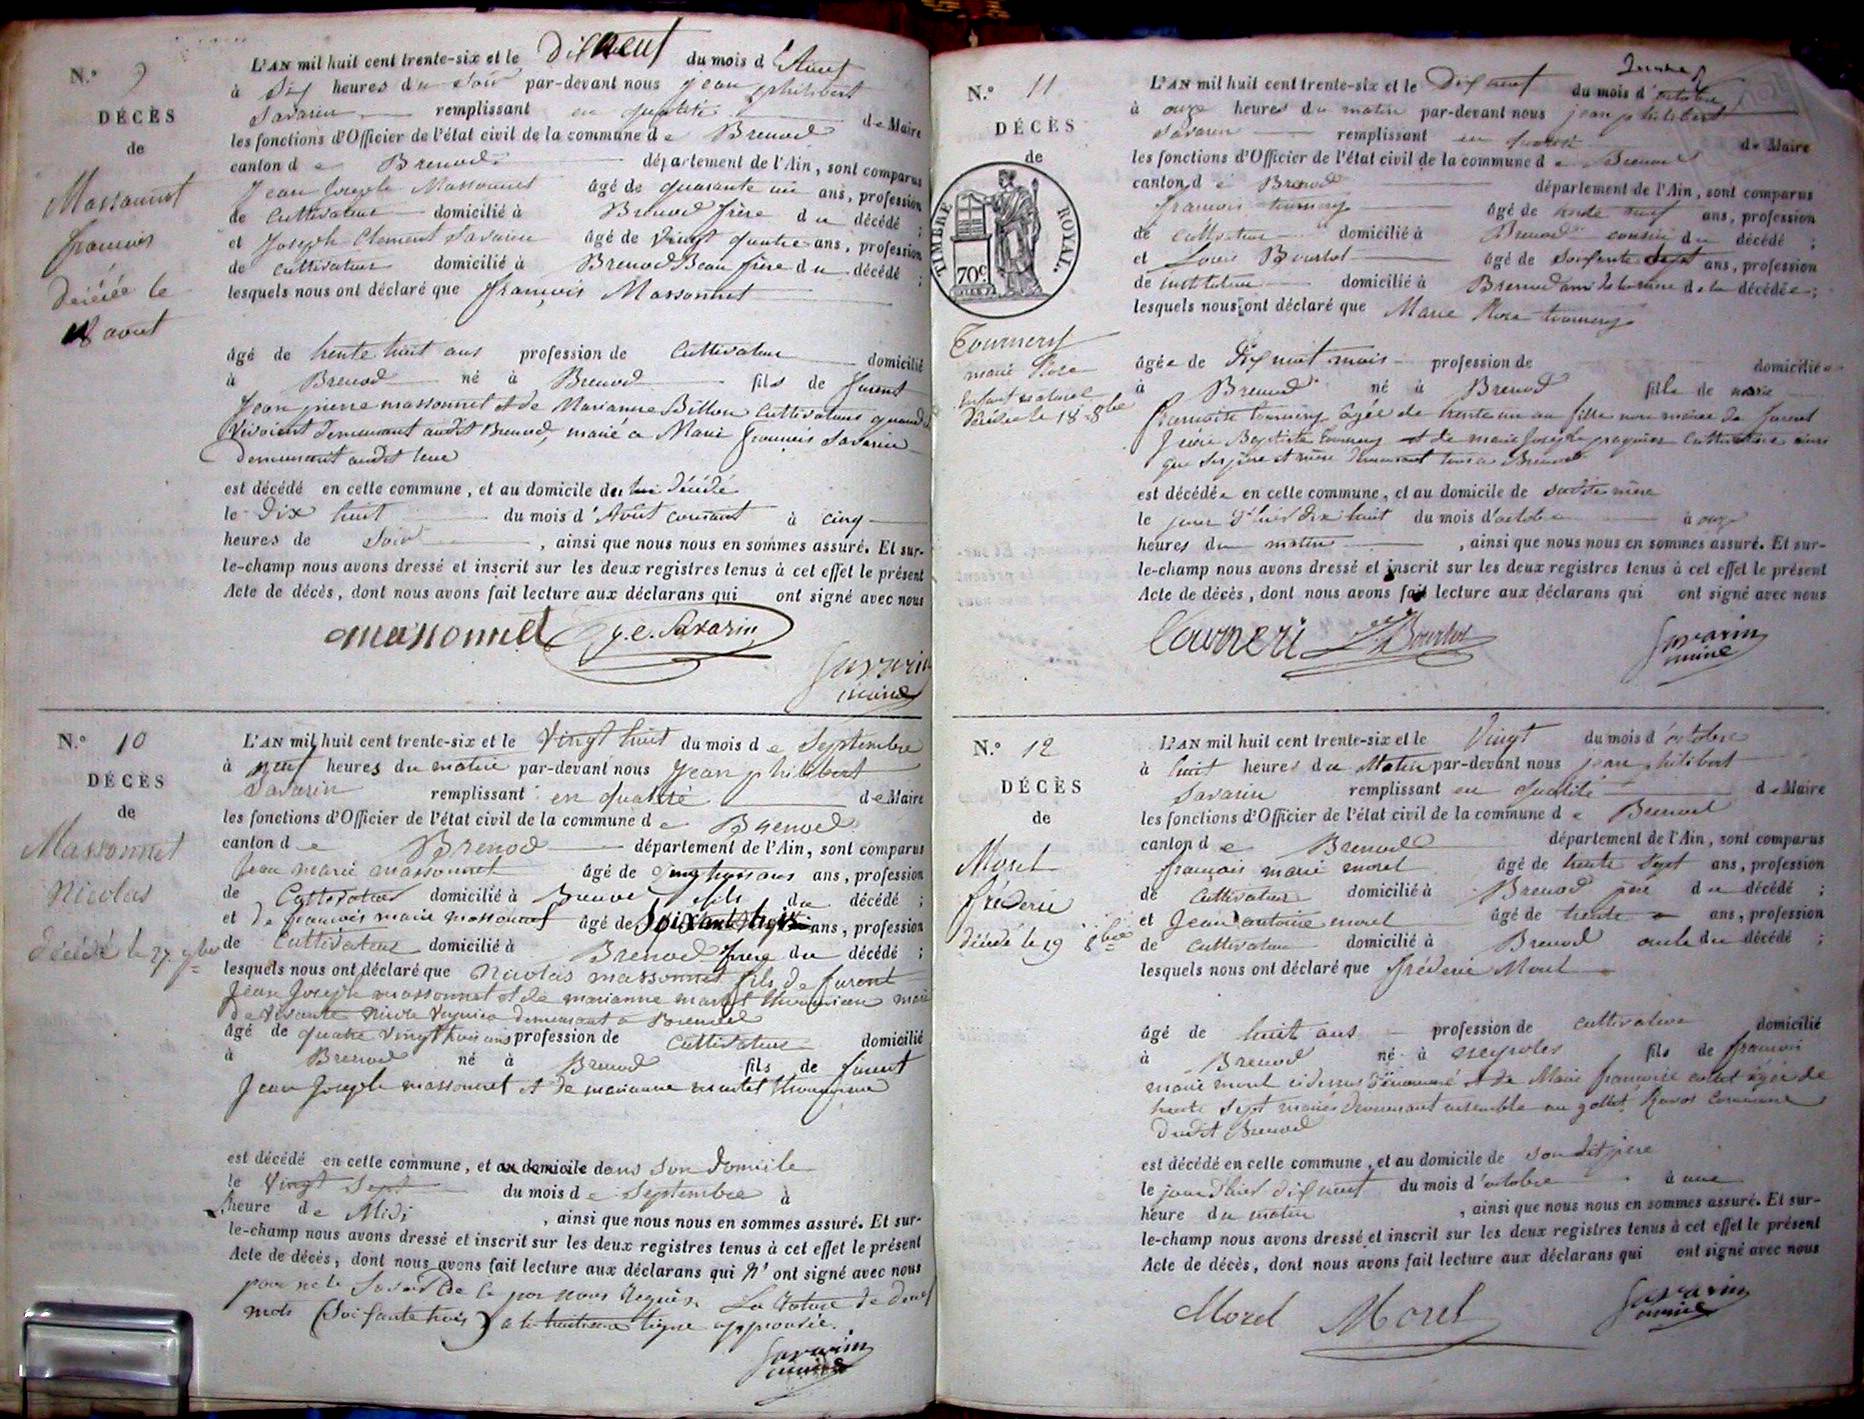 N.° 9
DÉCÈS
de
Massonnet
françois
Décédé le
18 aout
L'AN mil huit cent trente-six et le Dix neuf du mois d'Aout
à Six heures du Soir par-devant nous Jean philibert
Savarin remplissant en qualité de Maire
les fonctions d'Officier de l'état civil de la commune de Brenod
canton de Brenod département de l'Ain, sont comparus
Jean Joseph Massonnet âgé de quarante un ans, profession
de Cultivateur domicilié à Brenod frère du décédé ;
et Joseph Clement Savarin âgé de Vingt quatre ans, profession
de cultivateur domicilié à Brenod Beau frère du décédé ;
lesquels nous ont déclaré que françois Massonnet
âgé de trente huit ans profession de Cultivateur domicilié
à Brenod né à Brenod fils de furent
Jean pierre massonnet et de Marianne Billion Cultivateurs quand ils
Vivoient demeurant audit Brenod, marié a Marie françoise Savarin
demeurant audit lieu
est décédé en cette commune, et au domicile du décédé
le Dix huit du mois d'Août courant à cinq
heures de Soir, ainsi que nous nous en sommes assuré. Et sur-
le-champ nous avons dressé et inscrit sur les deux registres tenus à cet effet le présent
Acte de décès, dont nous avons fait lecture aux déclarans qui ont signé avec nous
massonnet J. C. Savarin
Savarin
maire
N.° 10
DÉCÈS
de
Massonnet
Nicolas
décédé le 27 7bre
L'AN mil huit cent trente-six et le Vingt huit du mois de Septembre
à neuf heures du matin par-devant nous Jean philibert
Savarin remplissant en qualité de Maire
les fonctions d'Officier de l'état civil de la commune de Brenod
canton de Brenod département de l'Ain, sont comparus
Jean marie massonnet âgé de ans, profession
de Cultivateur domicilié à Brenod fils du décédé ;
et de françois marie massonnet âgé de Soixante trois ans, profession
de Cultivateur domicilié à Brenod frere du décédé ;
lesquels nous ont déclaré que Nicolas massonnet fils de furent
Jean Joseph massonnet et de marianne martet Thoumierme marié
de Vivante demeurant a Brenod
âgé de quatre Vingt trois ans profession de Cultivateur domicilié
à Brenod né à Brenod fils de furent
Jean Joseph massonnet et de marianne martet
est décédé en cette commune, et au domicile dans son domicile
le Vingt Sept du mois de Septembre à
heure de Midi, ainsi que nous nous en sommes assuré. Et sur-
le-champ nous avons dressé et inscrit sur les deux registres tenus à cet effet le présent
Acte de décès, dont nous avons fait lecture aux déclarans qui n'ont signé avec nous
pour ne le Savoir de ce par nous requis. La rature de deux
mots (Soixante trois) a la huitieme ligne approuvée.
Savarin
maire
N.° 11
DÉCÈS
de
TIMBRE ROYAL.
70c
Tournery
marie Rose
Enfant naturel
Décédée le 18 8bre
L'AN mil huit cent trente-six et le Dix neuf du mois d'octobre
à onze heures du matin par-devant nous jean philibert
Savarin remplissant en qualité de Maire
les fonctions d'Officier de l'état civil de la commune de Brenod
canton de Brenod département de l'Ain, sont comparus
françois tournery âgé de trente neuf ans, profession
de cultivateur domicilié à Brenod cousin du décédé ;
et Louis Bourbot âgé de Soixante Sept ans, profession
de instituteur domicilié à Brenod ami de la mere de la décédée ;
lesquels nous ont déclaré que Marie Rose tournery
âgée de Dix huit mois profession de domiciliée
à Brenod né à Brenod fille de marie
françoise tournery âgée de trente un an fille non mariée de furent
Baptiste tournery et de marie Joseph cultivatrice ainsi
que ses père et mère demeurant tous a Brenod
est décédée en cette commune, et au domicile de sadite mère
le jour d'hier dix huit du mois d'octobre à onze
heures du matin, ainsi que nous nous en sommes assuré. Et sur-
le-champ nous avons dressé et inscrit sur les deux registres tenus à cet effet le présent
Acte de décès, dont nous avons fait lecture aux déclarans qui ont signé avec nous
Tourneri Bourbot
Savarin
maire
N.° 12
DÉCÈS
de
Morel
fréderic
décédé le 19 8bre
L'AN mil huit cent trente-six et le Vingt du mois d'octobre
à huit heures du Matin par-devant nous jean philibert
Savarin remplissant en qualité de Maire
les fonctions d'Officier de l'état civil de la commune de Brenod
canton de Brenod département de l'Ain, sont comparus
françois marie morel âgé de trente Sept ans, profession
de cultivateur domicilié à Brenod père du décédé ;
et Jean antoine morel âgé de trente ans, profession
de cultivateur domicilié à Brenod oncle du décédé ;
lesquels nous ont déclaré que fréderic Morel
âgé de huit ans profession de cultivateur domicilié
à Brenod né à neyroles fils de françois
marie morel ci dessus dénommé et de Marie françoise collet âgée de
trente Sept mariés demeurant ensemble au gollet Ravos Commune
dudit Brenod
est décédé en cette commune, et au domicile de son dit père
le jour d'hier dix neuf du mois d'octobre à une
heure du matin, ainsi que nous nous en sommes assuré. Et sur-
le-champ nous avons dressé et inscrit sur les deux registres tenus à cet effet le présent
Acte de décès, dont nous avons fait lecture aux déclarans qui ont signé avec nous
Morel Morel
Savarin
maire